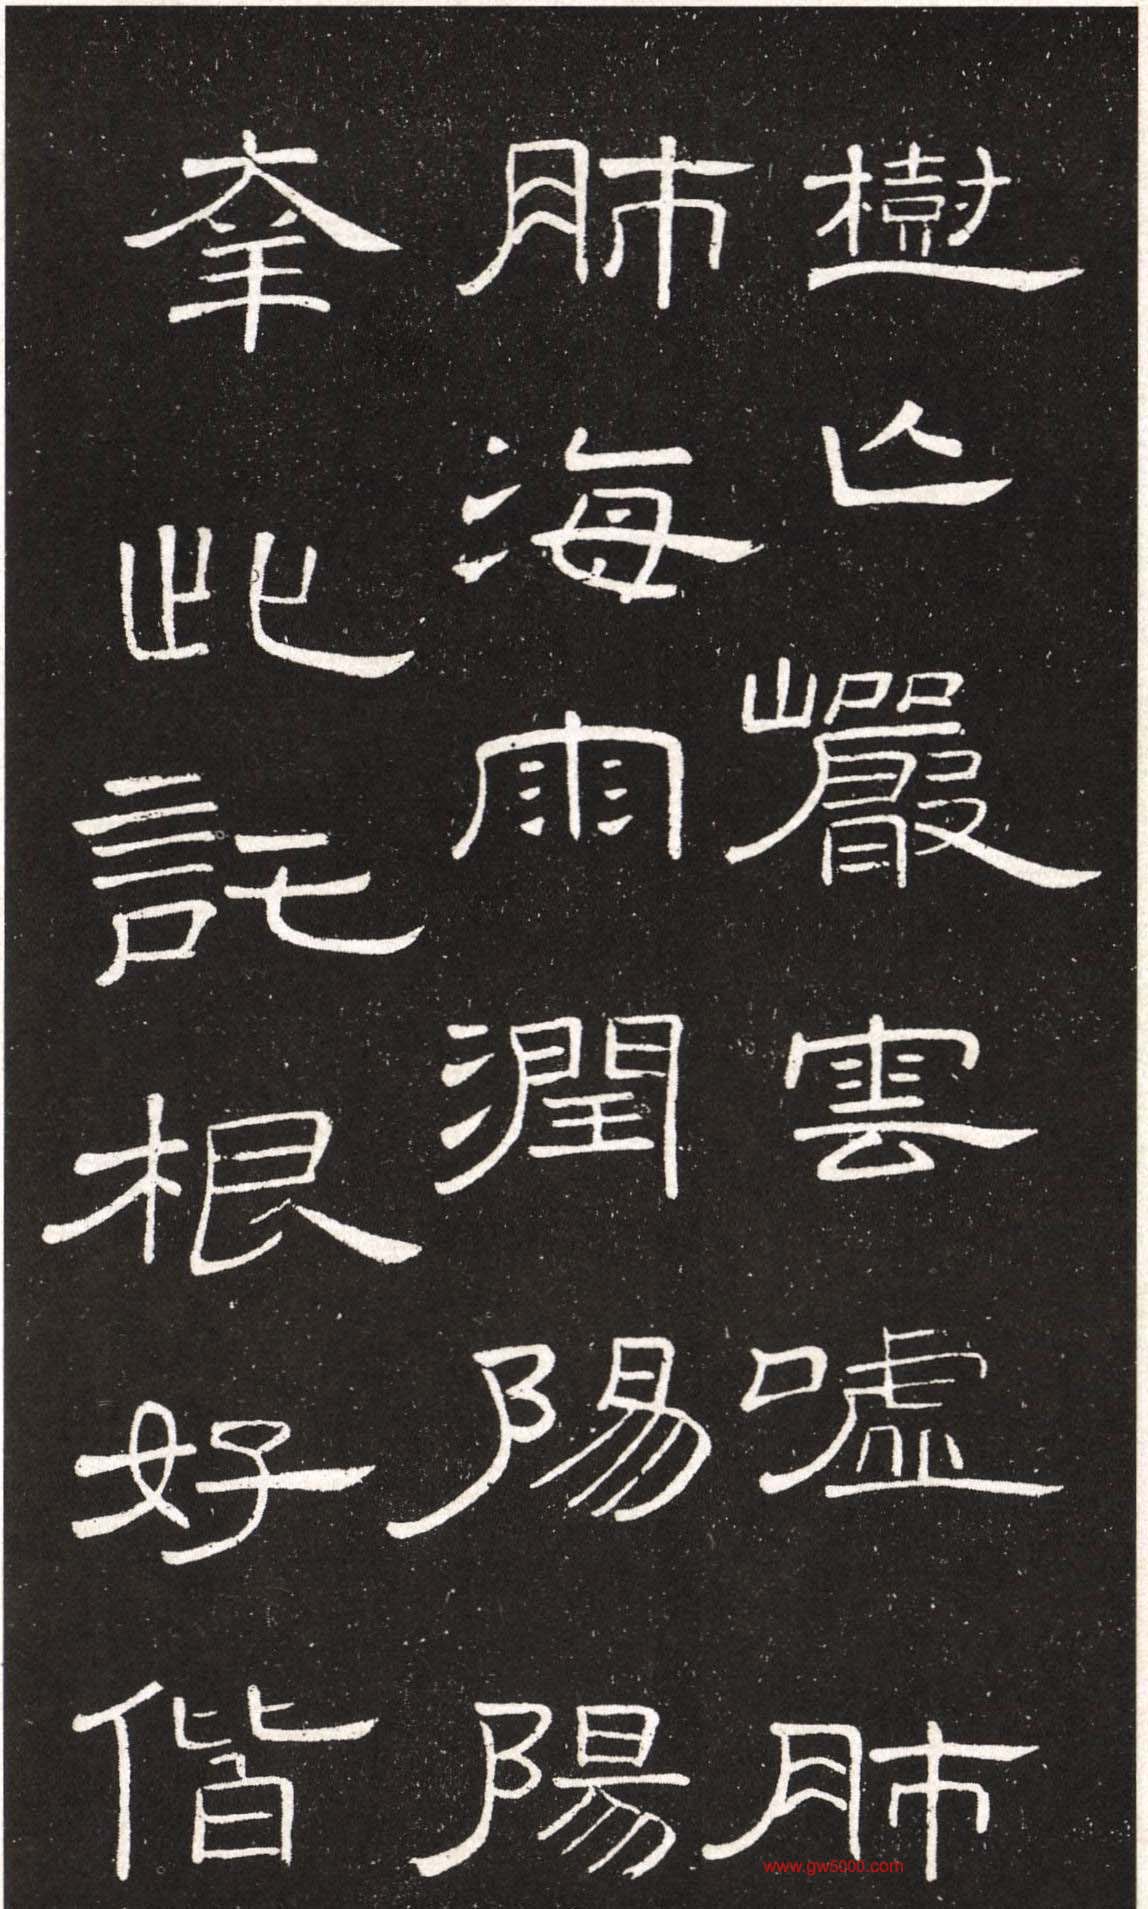 樹亾巖雲噓肺
肺海雨潤陽陽
幸此託根好偕
www.gw5000.com